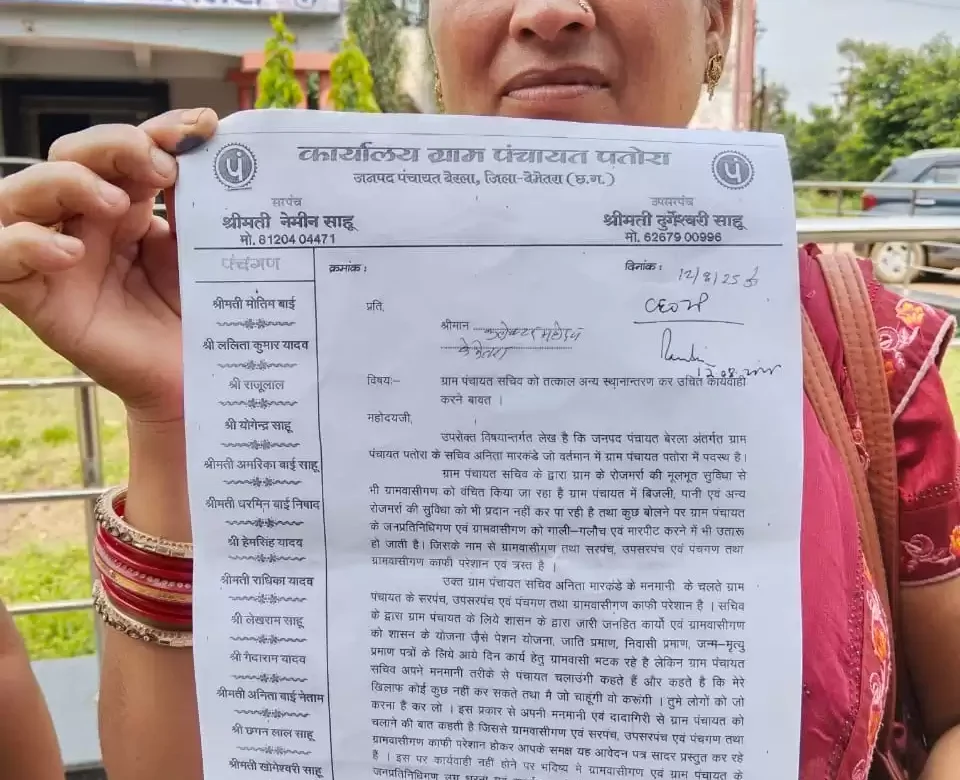 कार्यालय ग्राम पंचायत पतोरा
जनपद पंचायत बेरला, जिला-बेमेतरा (छ.ग.)
सरपंच
श्रीमती नेमीन साहू
मो. 61204 04471
उपसरपंच
श्रीमती दुर्गेश्वरी साहू
मो. 62679 00996
पंचगण
श्रीमती मोतिम बाई
श्री ललिता कुमार यादव
श्री राजूलाल
श्री योगेन्द्र साहू
श्रीमती अमरिका बाई साहू
श्रीमती धरमिन बाई निषाद
श्री हेमसिंह यादव
श्रीमती राधिका यादव
श्री लेखराम साहू
श्री गैदाराम यादव
श्रीमती अनिता बाई नेताम
श्री छगन लाल साहू
श्रीमती खोगेश्वरी साहू
क्रमांक :
दिनांक : 12/8/25
CEO
12.08.2025
प्रति,
श्रीमान कलेक्टर महोदय
बेमेतरा
विषय:– ग्राम पंचायत सचिव को तत्काल अन्य स्थानान्तरण कर उचित कार्यवाही
करने बावत ।
महोदयजी,
उपरोक्त विषयान्तर्गत लेख है कि जनपद पंचायत बेरला अंतर्गत ग्राम
पंचायत पतोरा के सचिव अनिता मारकंडे जो वर्तमान में ग्राम पंचायत पतोरा में पदस्थ है।
ग्राम पंचायत सचिव के द्वारा ग्राम के रोजमर्रा की मूलभूत सुविधा से
भी ग्रामवासीगण को वंचित किया जा रहा है ग्राम पंचायत में बिजली, पानी एवं अन्य
रोजमर्रा की सुविधा को भी प्रदान नहीं कर पा रही है तथा कुछ बोलने पर ग्राम पंचायत
के जनप्रतिनिधिगण एवं ग्रामवासीगण को गाली–गलौच एवं मारपीट करने में भी उतारू
हो जाती है। जिसके नाम से ग्रामवासीगण तथा सरपंच, उपसरपंच एवं पंचगण तथा
ग्रामवासीगण काफी परेशान एवं त्रस्त है ।
उक्त ग्राम पंचायत सचिव अनिता मारकंडे के मनमानी के चलते ग्राम
पंचायत के सरपंच, उपसरपंच एवं पंचगण तथा ग्रामवासीगण काफी परेशान है । सचिव
के द्वारा ग्राम पंचायत के लिये शासन के द्वारा जारी जनहित कार्यो एवं ग्रामवासीगण
को शासन के योजना जैसे पेशन योजना, जाति प्रमाण, निवासी प्रमाण, जन्म–मृत्यु
प्रमाण पत्रों के लिये आये दिन कार्य हेतु ग्रामवासी भटक रहे है लेकिन ग्राम पंचायत
सचिव अपने मनमानी तरीके से पंचायत चलाउंगी कहते हैं और कहते है कि मेरे
खिलाफ कोई कुछ नहीं कर सकते तथा मै जो चाहूंगी वो करूंगी । तुमे लोगों को जो
करना है कर लो । इस प्रकार से अपनी मनमानी एवं दादागिरी से ग्राम पंचायत को
चलाने की बात कहती है जिससे ग्रामवासीगण एवं सरपंच, उपसरपंच एवं पंचगण तथा
ग्रामवासीगण काफी परेशान होकर आपके समक्ष यह आवेदन पत्र सादर प्रस्तुत कर रहे
हैं । इस पर कार्यवाही नहीं होने पर भविष्य मे ग्रामवासीगण एवं ग्राम पंचायत के
जनप्रतिनिधिगण